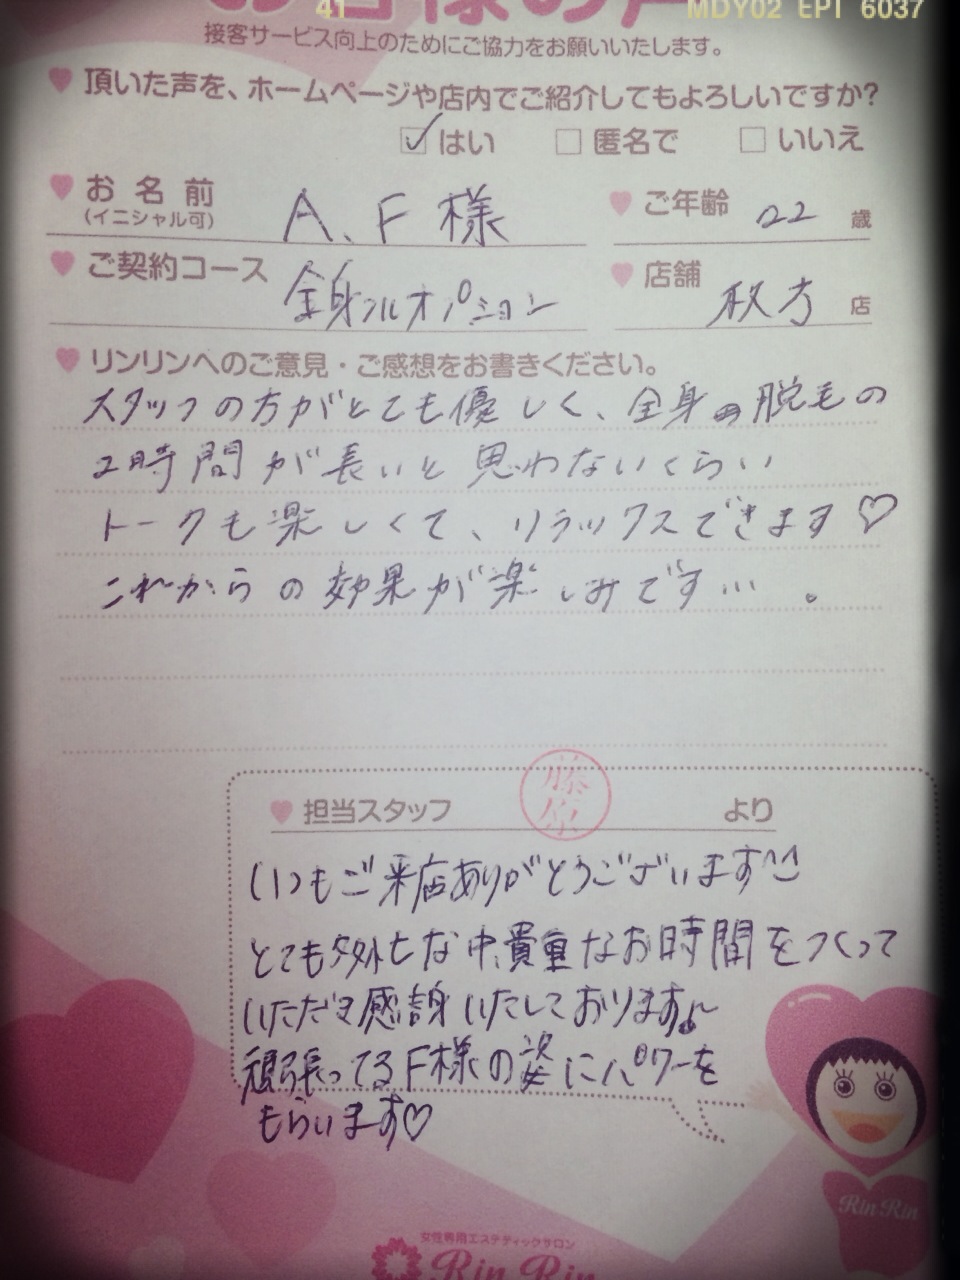 お客様の声
41 MDY02 EPI 6037
接客サービス向上のためにご協力をお願いいたします。
頂いた声を、ホームページや店内でご紹介してもよろしいですか?
はい 匿名で いいえ
お名前 (イニシャル可) A、F様 ご年齢 22 歳
ご契約コース 全身フルオプション 店舗 枚方 店
リンリンへのご意見・ご感想をお書きください。
スタッフの方がとても優しく、全身の脱毛の
2時間が長いと思わないくらい
トークも楽しくて、リラックスできます♡
これからの効果が楽しみです… 。
担当スタッフ 藤原 より
いつもご来店ありがとうございます^^
とても多忙な中、貴重なお時間をつくって
いただき感謝いたしております♪
頑張ってるF様の姿にパワーを
もらいます♡
Rin Rin
女性専用エステティックサロン
Rin Rin